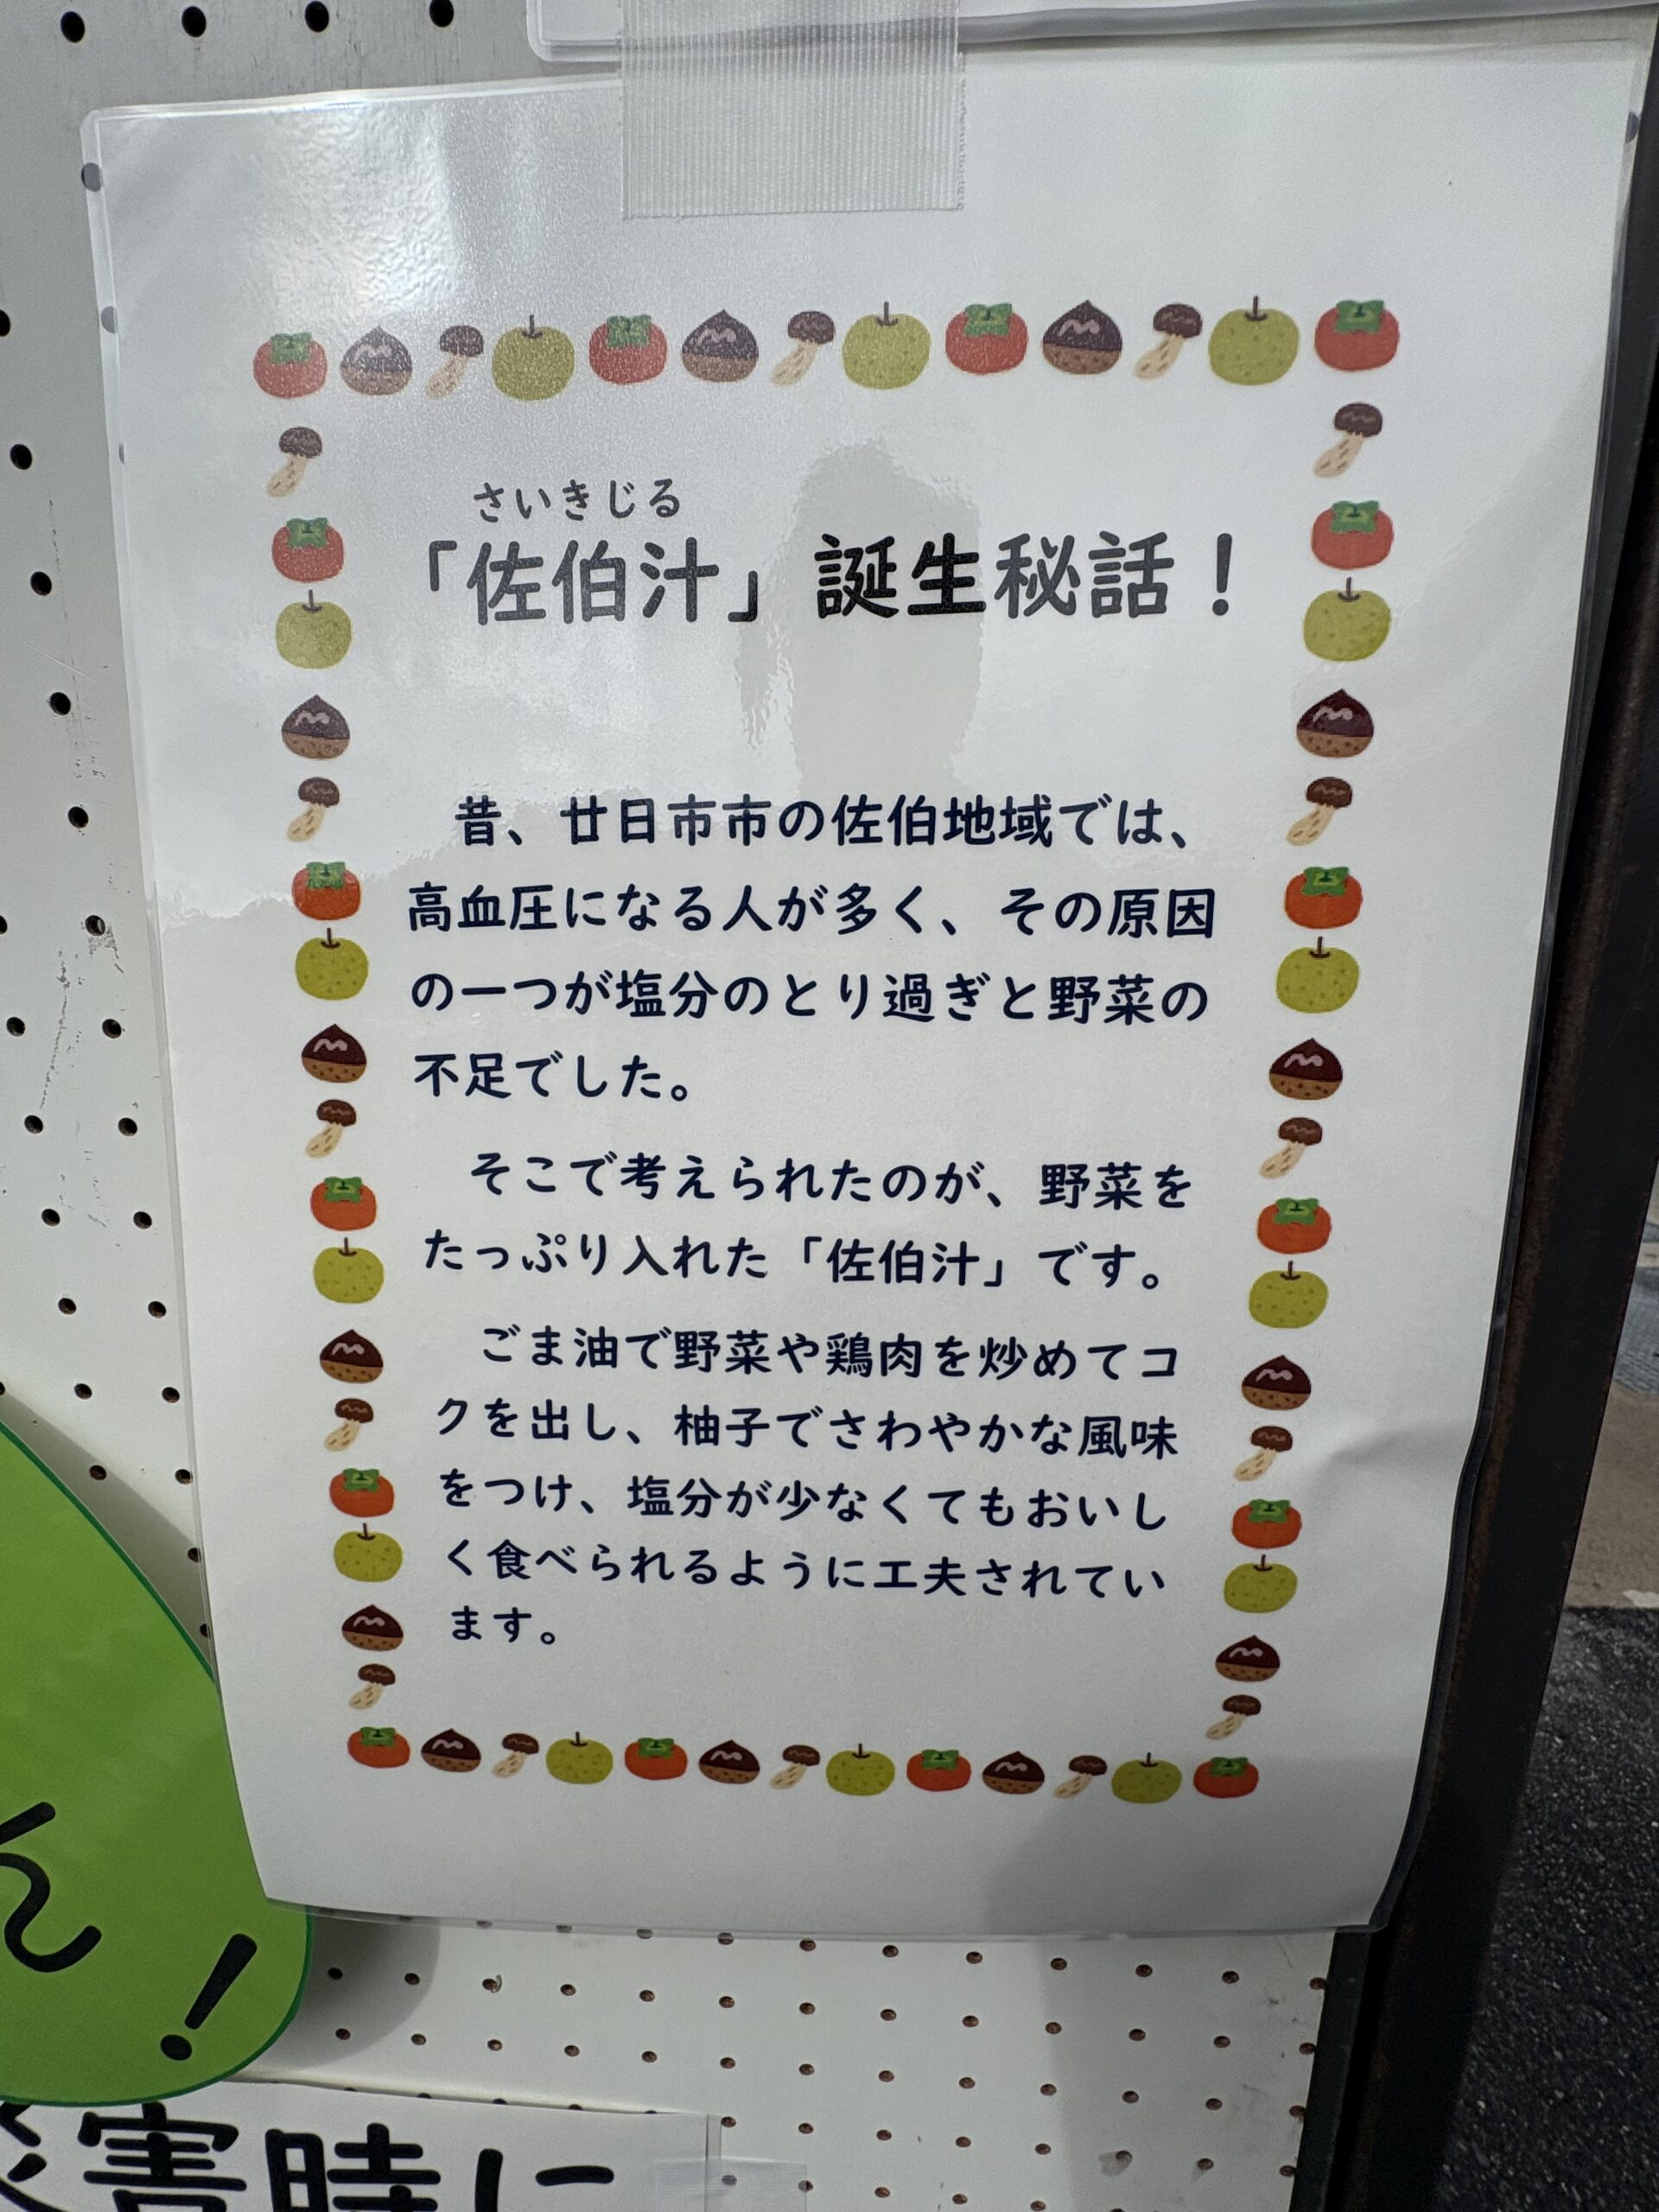 さいきじる
「佐伯汁」誕生秘話！
昔、廿日市市の佐伯地域では、
高血圧になる人が多く、その原因
の一つが塩分のとり過ぎと野菜の
不足でした。
そこで考えられたのが、野菜を
たっぷり入れた「佐伯汁」です。
ごま油で野菜や鶏肉を炒めてコ
クを出し、柚子でさわやかな風味
をつけ、塩分が少なくてもおいし
く食べられるように工夫されてい
ます。
ん！
災害時に